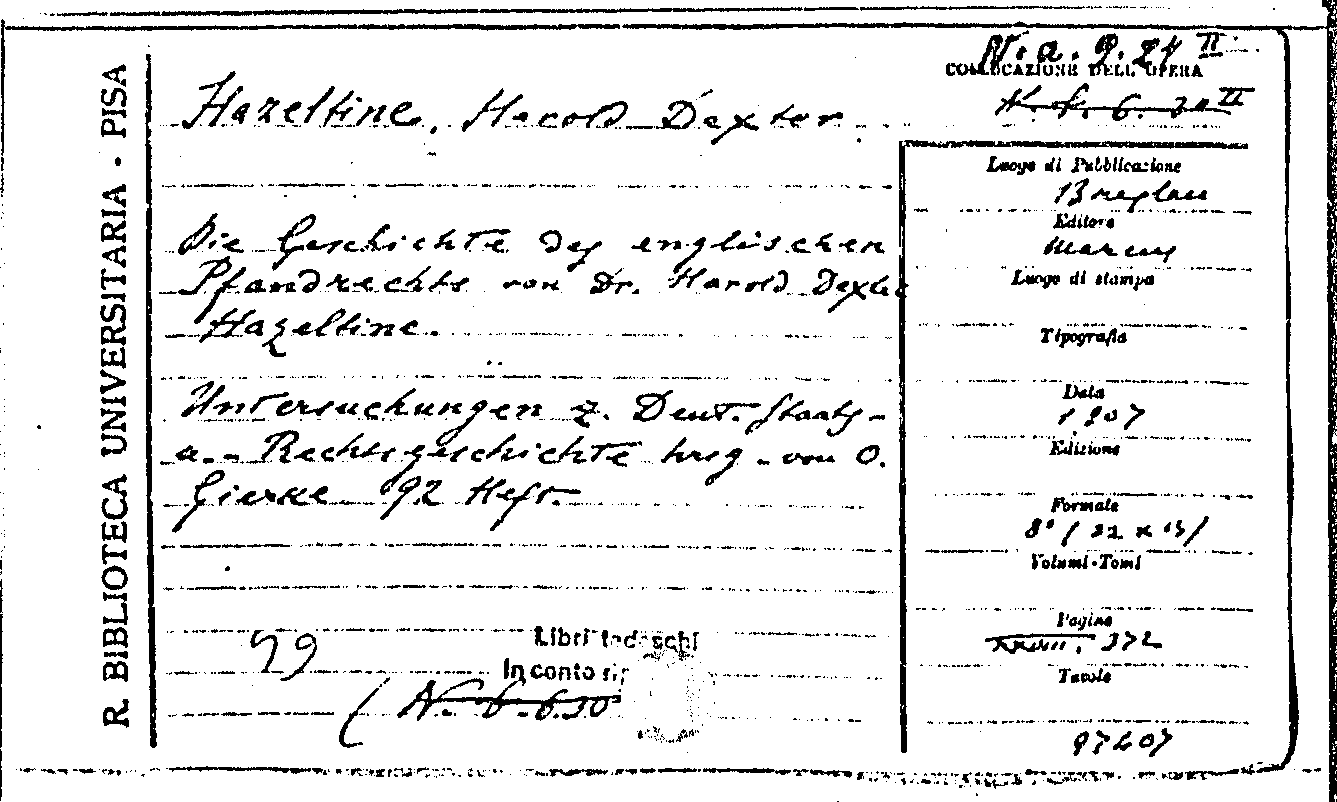 R. BIBLIOTECA UNIVERSITARIA · PISA
N. a. 9. 24 II
COLLOCAZIONE DELL'OPERA
Hazeltine, Harold Dexter
Die Geschichte des englischen
Pfandrechts von Dr. Harold Dexter
Hazeltine.
Untersuchungen z. Deut. Staats-
u. - Rechtsgeschichte hrsg. von O.
Gierke 92 Heft.
99
Libri tedeschi
In conto
Luogo di Pubblicazione
Breslau
Editore
Marcus
Luogo di stampa
Tipografia
Data
1907
Edizione
Formato
8° / 22 x 15/
Volumi-Tomi
Pagine
372
Tavole
97207